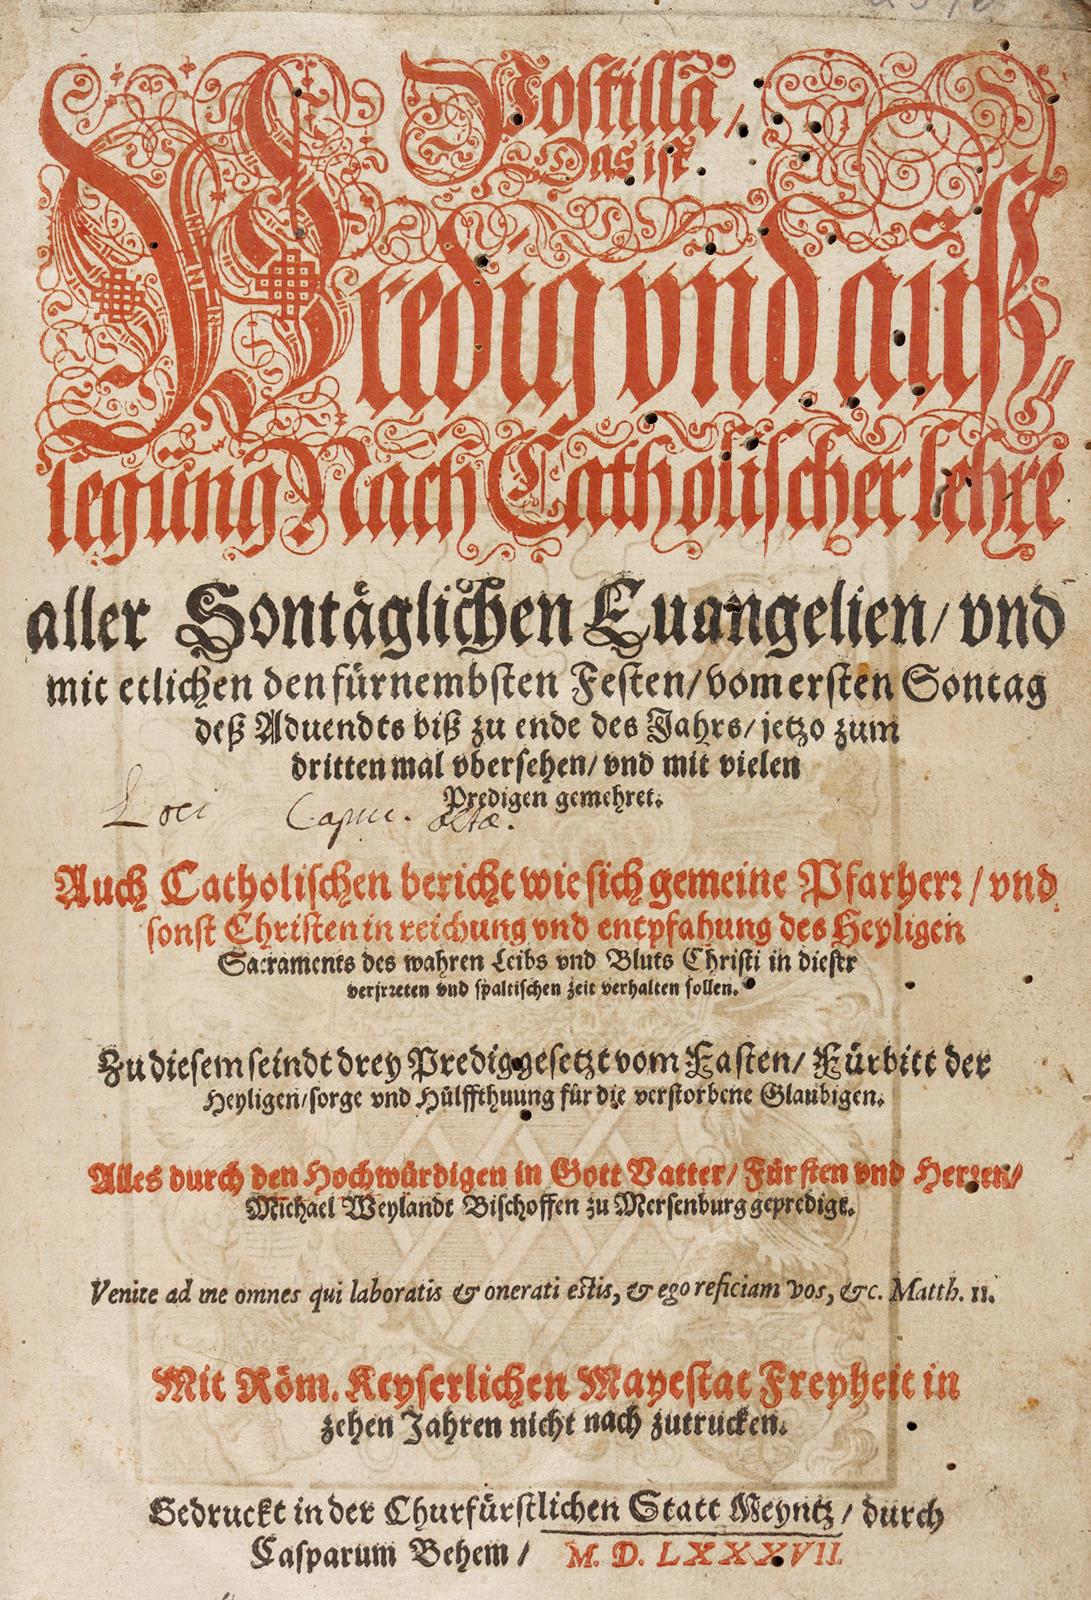 Postilla,
Das ist.
Predig vnd auß⸗
legung Nach Catholischer lehre
aller Sontäglichen Euangelien/ vnd
mit etlichen den fürnembsten Festen/ vom ersten Sontag
deß Aduendts biß zu ende des Jahrs/ jetzo zum
dritten mal vbersehen/ vnd mit vielen
Predigen gemehret.
Loci Capuc.
Auch Catholischen bericht wie sich gemeine Pfarherr/ vnd
sonst Christen in reichung vnd entpfahung des Heyligen
Sacraments des wahren Leibs vnd Bluts Christi in dieser
verjrreten vnd spaltischen zeit verhalten sollen.
Zu diesem seindt drey Predig gesetzt vom Fasten/ Fürbitt der
Heyligen/ sorge vnd Hülffthuung für die verstorbene Glaubigen.
Alles durch den Hochwürdigen in Gott Vatter/ Fürsten vnd Herren/
Michael Weylandt Bischoffen zu Mersenburg gepredigt.
Venite ad me omnes qui laboratis & onerati estis, & ego reficiam vos, &c. Matth. 11.
Mit Röm. Keyserlichen Mayestat Freyheit in
zehen Jahren nicht nach zutrucken.
Gedruckt in der Churfürstlichen Statt Meyntz/ durch
Casparum Behem/ M. D. LXXXVII.